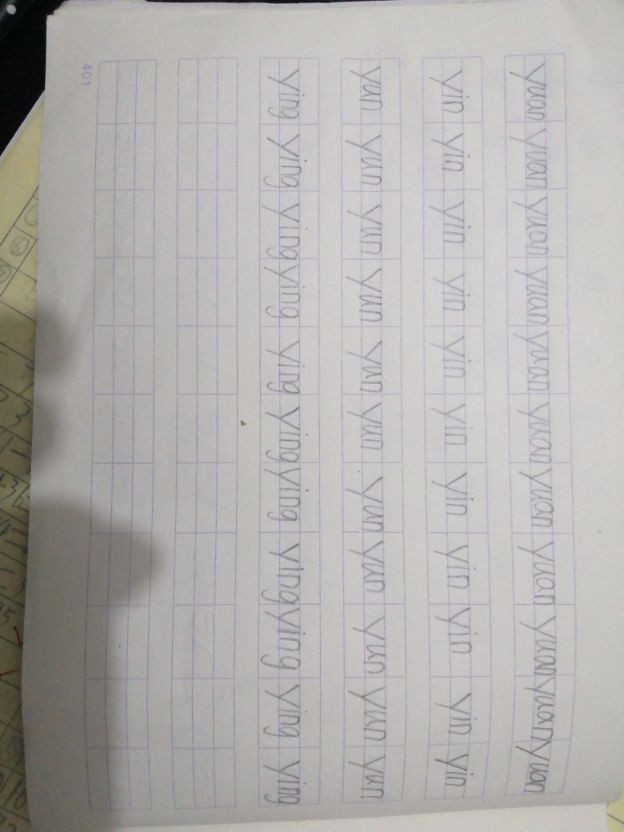 yuan yuan yuan yuan yuan yuan yuan yuan yuan yuan yuan
yin yin yin yin yin yin yin yin yin yin yin
yun yun yun yun yun yun yun yun yun yun yun
ying ying ying ying ying ying ying ying ying ying ying
401